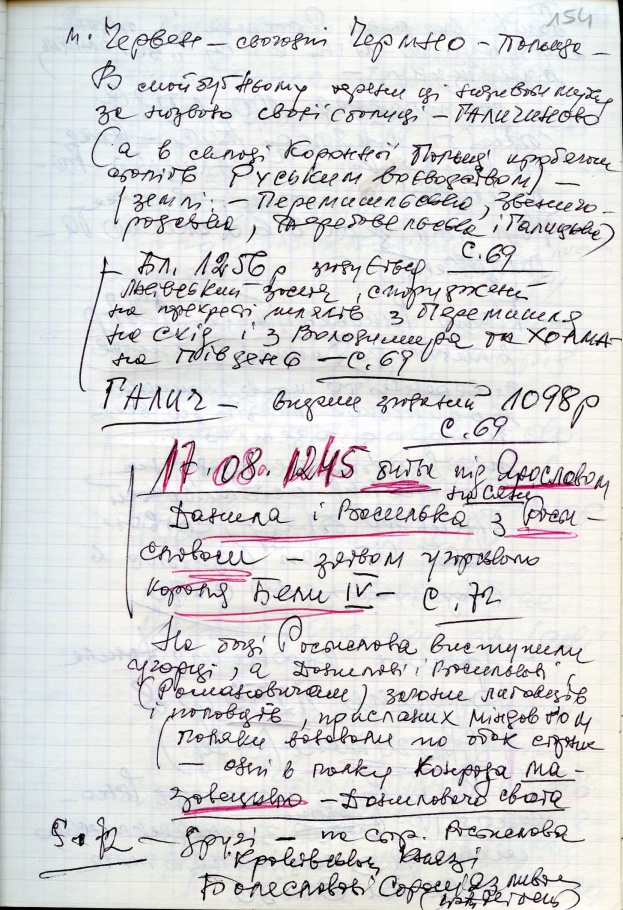 154
м. Червен – сьогодні Чермно – Польща –
В майбутньому терени ці назвали
за назвою своєї столиці – ГАЛИЧИНОЮ
(а в складі Коронної Польщі
Руським воєводством) –
землі: – Перемишльська, Звениго-
родська, Теребовельська і Галицька)
С. 69
Бл. 1256 р
Львівський замок, споруджений
на перехресті шляхів з Перемишля
на Схід і з Володимира та ХОЛМА
на Південь – С. 69
ГАЛИЧ – 1098 р
С. 69
17. 08. 1245 битва під Ярославом
Данила і Василька з Рости-
славом – зятем угорського
короля Бели IV – С. 72
На боці Ростислава виступили
угорці, а Данилові і Василькові
(Романовичам) загони литовців
і половців, присланих Міндовгом
поляки воювали по обох сторонах
– одні в полку Конрада Ма-
зовецького – Данилового свата
С. 72 – другі – по стор. Ростислава
Краківський князі
Болеславові